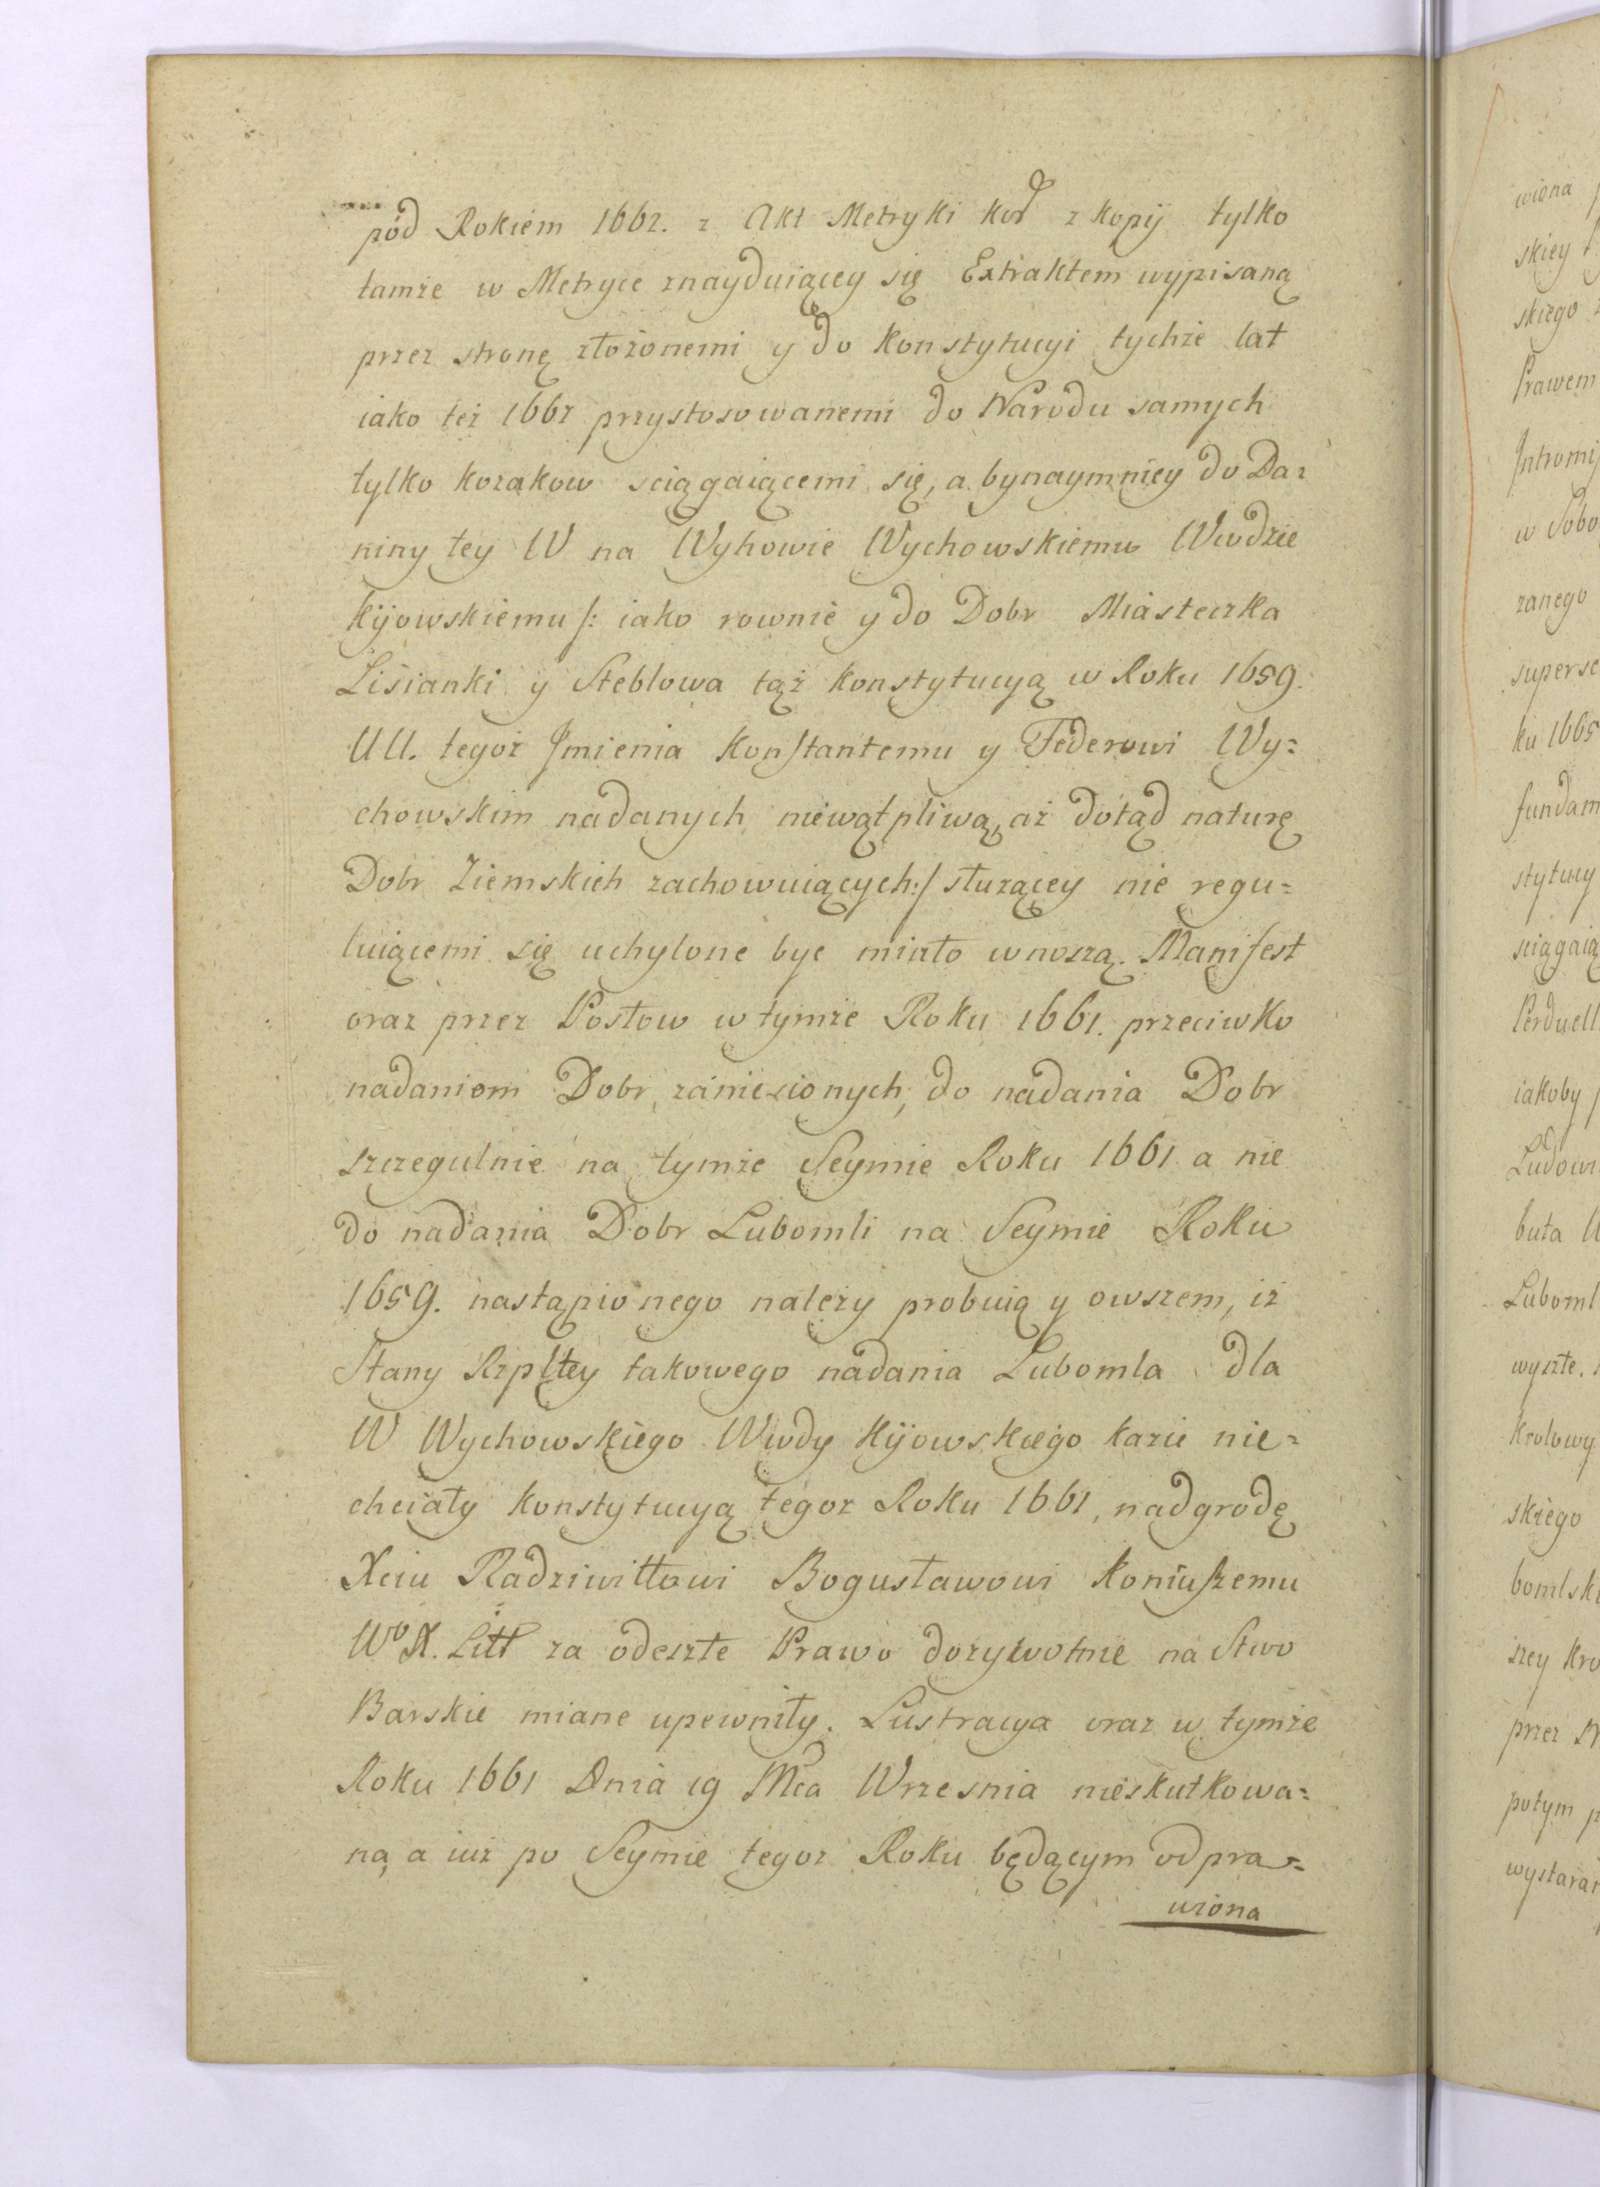 pod Rokiem 1662. z Akt Metryki kor z kopij tylko
tamże w Metryce znayduiącey się Extraktem wypisaną
przez stronę złożonemi y do Konstytucyi tychże lat
iako też 1667 przystosowanemi do Narodu samych
tylko kozakow sciągaiącemi się, a bynaymniey do Da=
niny tey W na Wyhowie Wychowskiemu Wwodzie
kijowskiemu /: iako rownie y do Dobr Miasteczka
Lisianki y Steblowa tąż konstytucyą w Roku 1659.
UU. tegoż Jmienia Konstantemu y Federowi Wy=
chowskim nadanych niewątpliwą, aż dotąd naturę
Dobr Ziemskich zachowuiących:/ służącey nie regu=
luiącemi się uchylone byc miało wnoszą. Manifest
oraz przez Posłow w tymże Roku 1661. przeciwko
nadaniom Dobr, zaniesionych, do nadania Dobr
szczegulnie na tymże Seymie Roku 1661 a nie
do nadania Dobr Lubomli na Seymie Roku
1659. nastąpionego należy probuią y owszem, iż
Stany Rzpltey takowego nadania Lubomla dla
W Wychowskiego Wwdy Kijowskiego kazić nie=
chciały konstytucyą tegoż Roku 1661, nadgrodę
Xciu Radziwiłłowi Bogusławowi Koniuszemu
Wo X. Litt za odeszłe Prawo dożywotnie na Stwo
Barskie miane upewniły. Lustracya oraz w tymże
Roku 1661 Dnia 19 Mca Wrzesnia nieskutkowa=
ną a iuż po Seymie tegoż Roku będącym odpra=
wiona